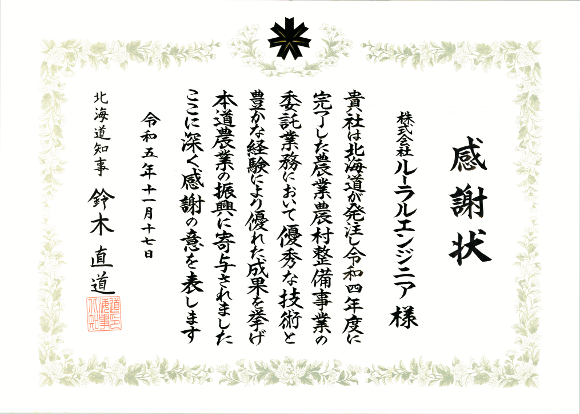 感謝状
株式会社ルーラルエンジニア 様
貴社は北海道が発注し令和四年度に
完了した農業農村整備事業の
委託業務において優秀な技術と
豊かな経験により優れた成果を挙げ
本道農業の振興に寄与されました
ここに深く感謝の意を表します
令和五年十一月十七日
北海道知事 鈴木直道